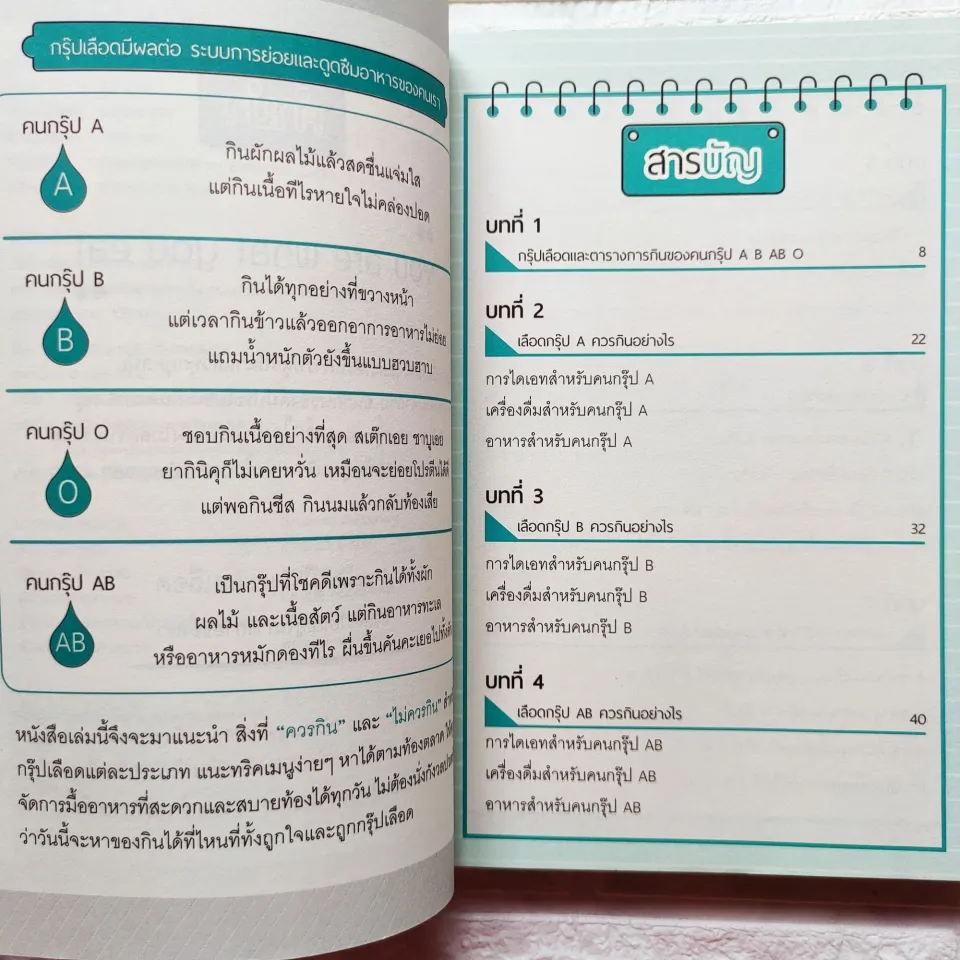 กรุ๊ปเลือดมีผลต่อ ระบบการย่อยและดูดซึมอาหารของคนเรา
คนกรุ๊ป A
A
กินผักผลไม้แล้วสดชื่นแจ่มใส
แต่กินเนื้อทีไรหายใจไม่คล่องปอด
คนกรุ๊ป B
B
กินได้ทุกอย่างที่ขวางหน้า
แต่เวลากินข้าวแล้วออกอาการอาหารไม่ย่อย
แถมน้ำหนักตัวยังขึ้นแบบฮวบฮาบ
คนกรุ๊ป O
O
ชอบกินเนื้ออย่างที่สุด สเต๊กเอย ชาบูเอย
ยากินิคุก็ไม่เคยหวั่น เหมือนจะย่อยโปรตีนได้ดี
แต่พอกินชีส กินนมแล้วกลับท้องเสีย
คนกรุ๊ป AB
AB
เป็นกรุ๊ปที่โชคดีเพราะกินได้ทั้งผัก
ผลไม้ และเนื้อสัตว์ แต่กินอาหารทะเล
หรืออาหารหมักดองทีไร ผื่นขึ้นคันคะเยอไป
หนังสือเล่มนี้จึงจะมาแนะนำ สิ่งที่ “ควรกิน” และ “ไม่ควรกิน”
กรุ๊ปเลือดแต่ละประเภท แนะทริคเมนูง่ายๆ หาได้ตามท้องตลาด
จัดการมื้ออาหารที่สะดวกและสบายท้องได้ทุกวัน ไม่ต้องนั่งกังวล
ว่าวันนี้จะหาของกินได้ที่ไหนที่ทั้งถูกใจและถูกกรุ๊ปเลือด
สารบัญ
บทที่ 1
กรุ๊ปเลือดและตารางการกินของคนกรุ๊ป A B AB O 8
บทที่ 2
เลือดกรุ๊ป A ควรกินอย่างไร 22
การไดเอทสำหรับคนกรุ๊ป A
เครื่องดื่มสำหรับคนกรุ๊ป A
อาหารสำหรับคนกรุ๊ป A
บทที่ 3
เลือดกรุ๊ป B ควรกินอย่างไร 32
การไดเอทสำหรับคนกรุ๊ป B
เครื่องดื่มสำหรับคนกรุ๊ป B
อาหารสำหรับคนกรุ๊ป B
บทที่ 4
เลือดกรุ๊ป AB ควรกินอย่างไร 40
การไดเอทสำหรับคนกรุ๊ป AB
เครื่องดื่มสำหรับคนกรุ๊ป AB
อาหารสำหรับคนกรุ๊ป AB